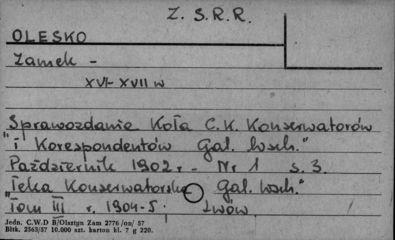 Z. S. R. R.
OLESKO
Zamek -
XVI-XVII w
Sprawozdanie Koła C. K. Konserwatorów
"i Korespondentów Gal. wsch."
Październik 1902 r - Nr 1 s. 3.
"Teka Konserwatorska Gal. wsch."
Tom III r. 1904-5. Lwów
Jedn. C.W D B/Olsztyn Zam 2776 /on/ 57
Bltk. 2563/57 10.000 szt. karton kl. 7 g 220.